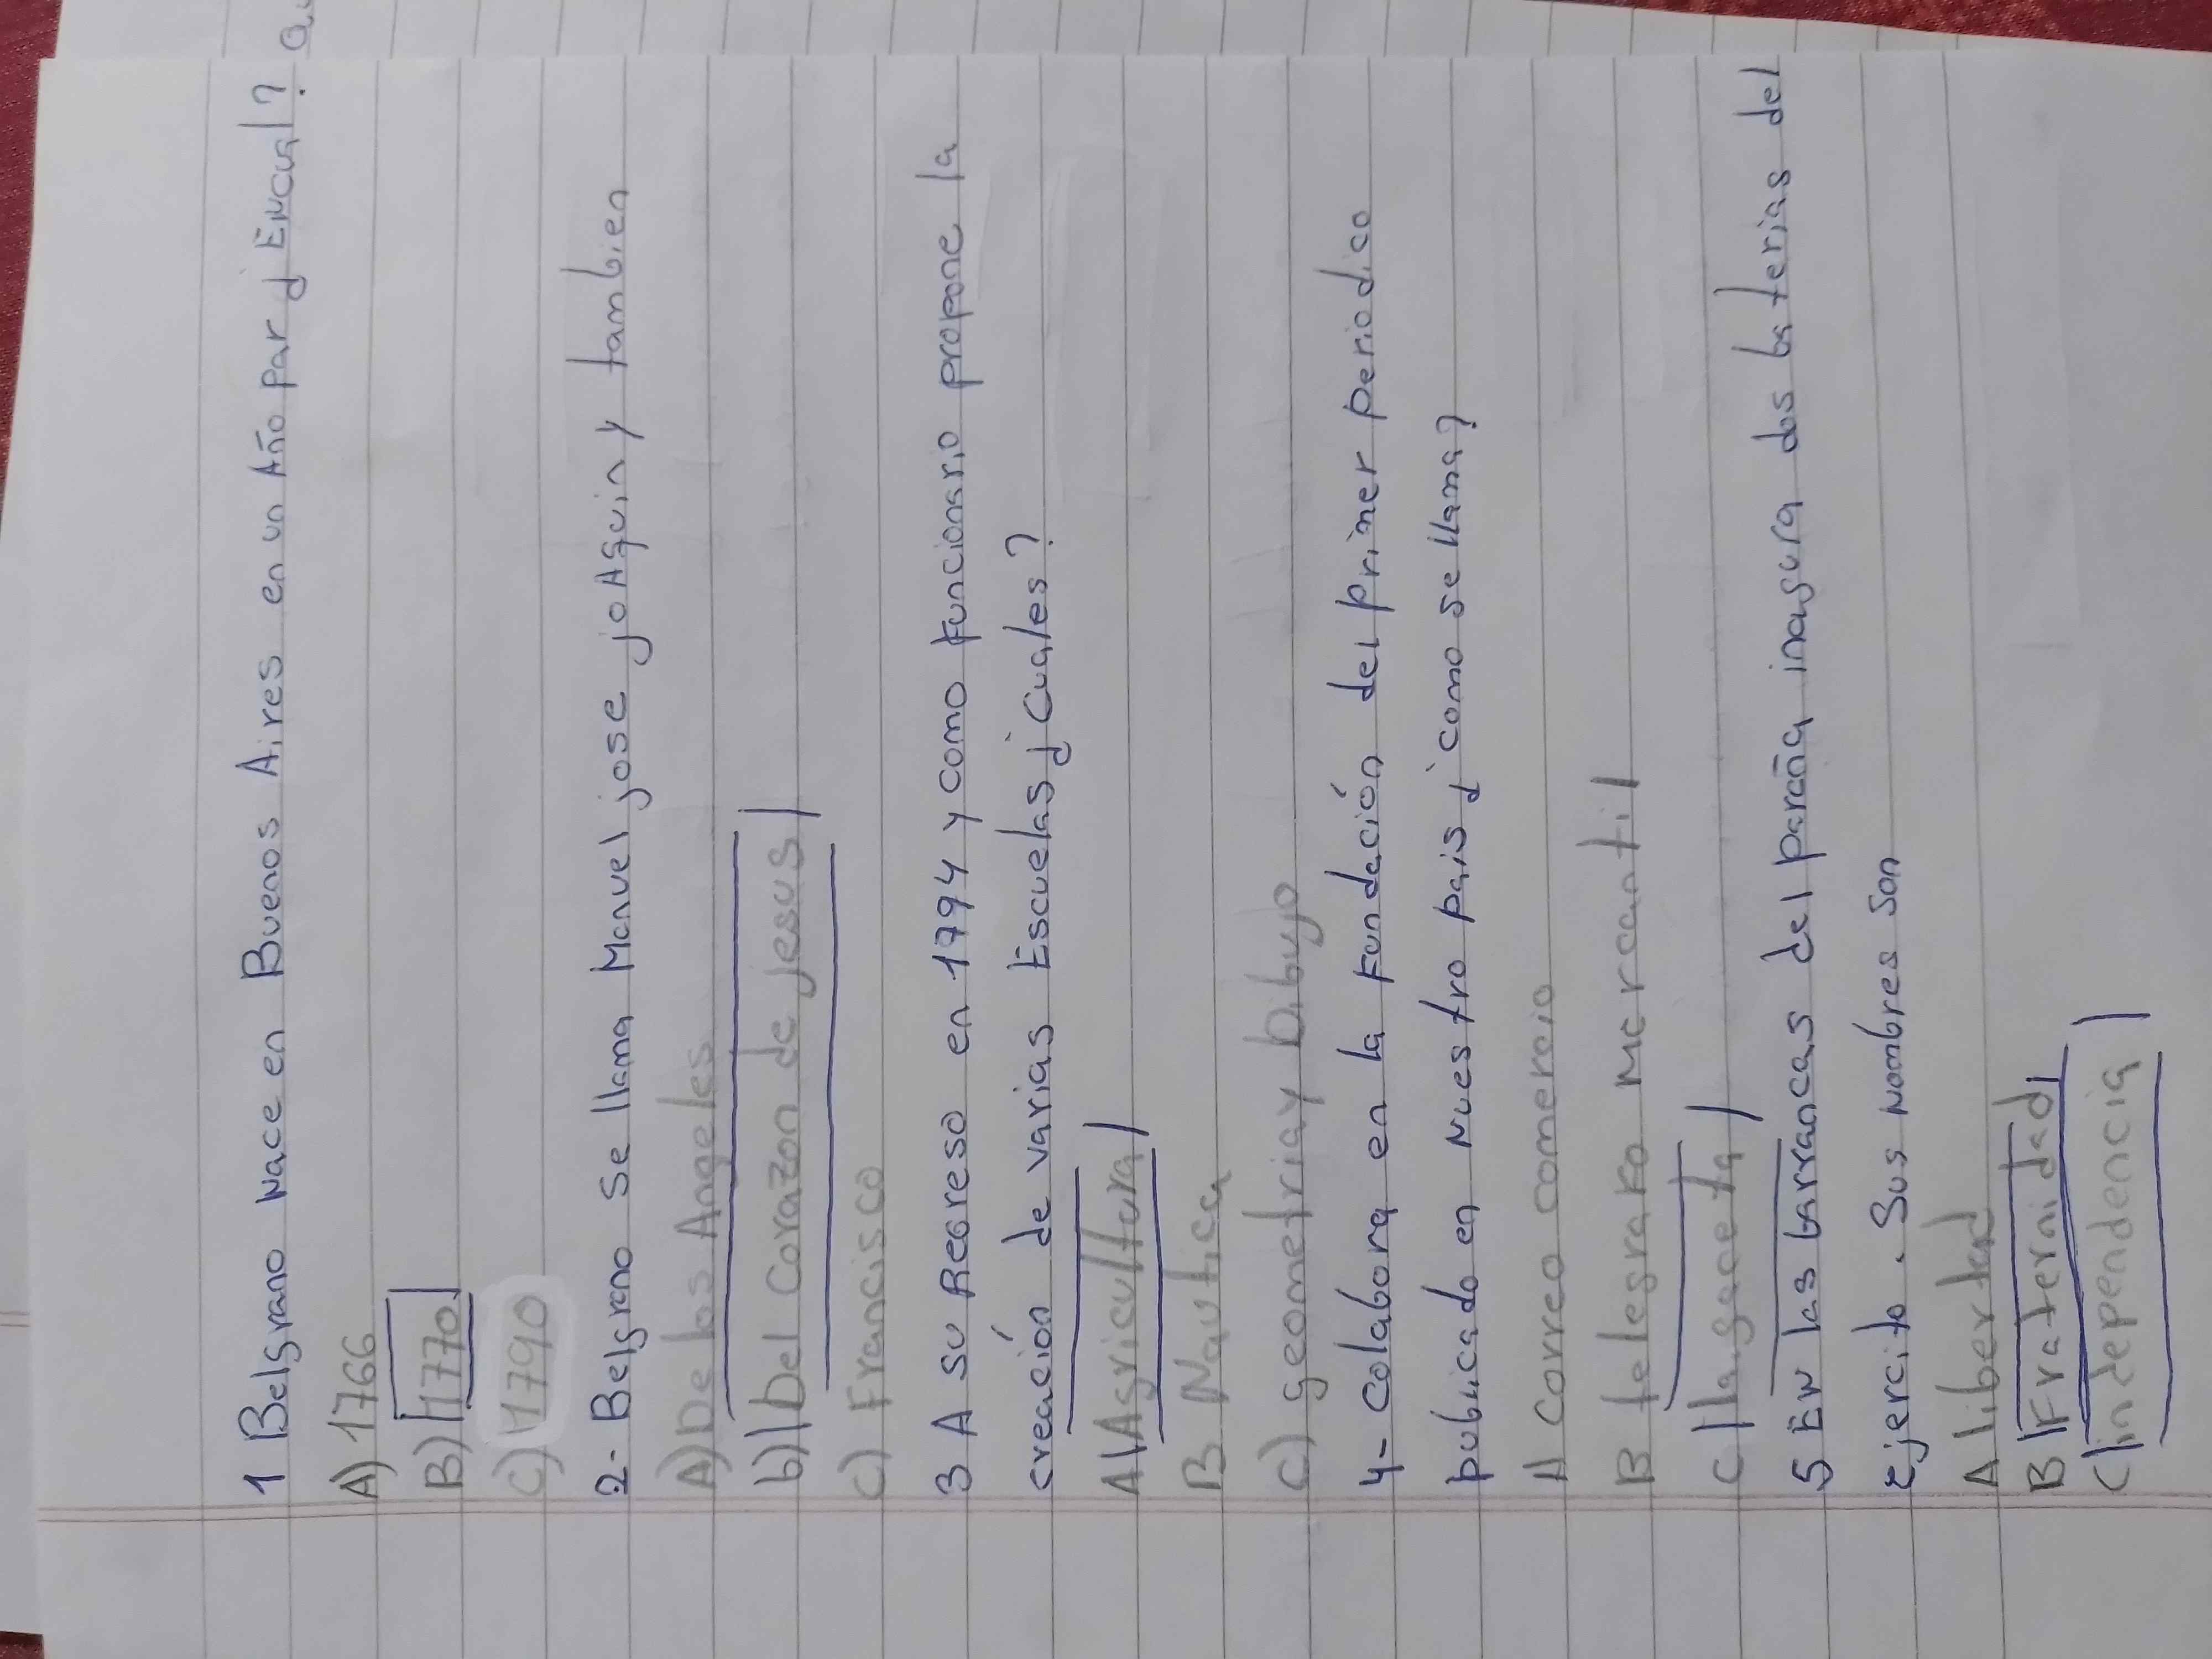 1 Belgrano Nace en Buenos Aires en un Año par ¿ En cual?
A) 1766
B) 1770
C) 1790
2- Belgrano se llama Manuel jose joAquin y tambien
A) De los Angeles
b) Del Corazon de jesus
C) Francisco
3 A su Regreso en 1794 y como funcionario propone la
creación de varias Escuelas ¿ Cuales?
A Agricultura
B Nautica
C) geometria y Dibujo
4- Colabora en la Fundación del primer periodico
publicado en Nuestro pais ¿ como se llama?
A Correo comercio
B telegrafo Mercantil
C la gaceta
5 EN las barrancas del paraña inagura dos baterias del
Ejercito. Sus Nombres Son
A libertad
B Fraternidad
C independencia